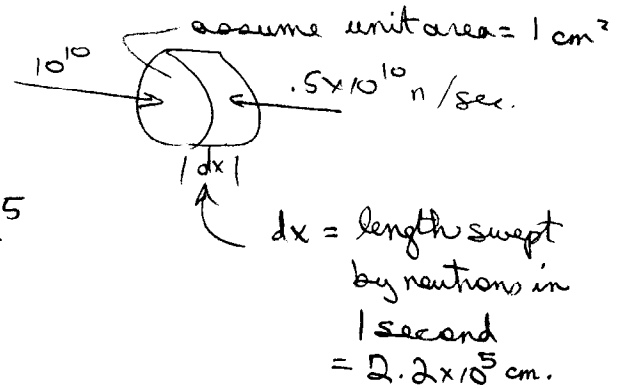 assume unit area = 1 cm²
10¹⁰
.5×10¹⁰ n/sec.
|dx|
5
dx = length swept
by neutrons in
1 second
= 2.2×10⁵ cm.